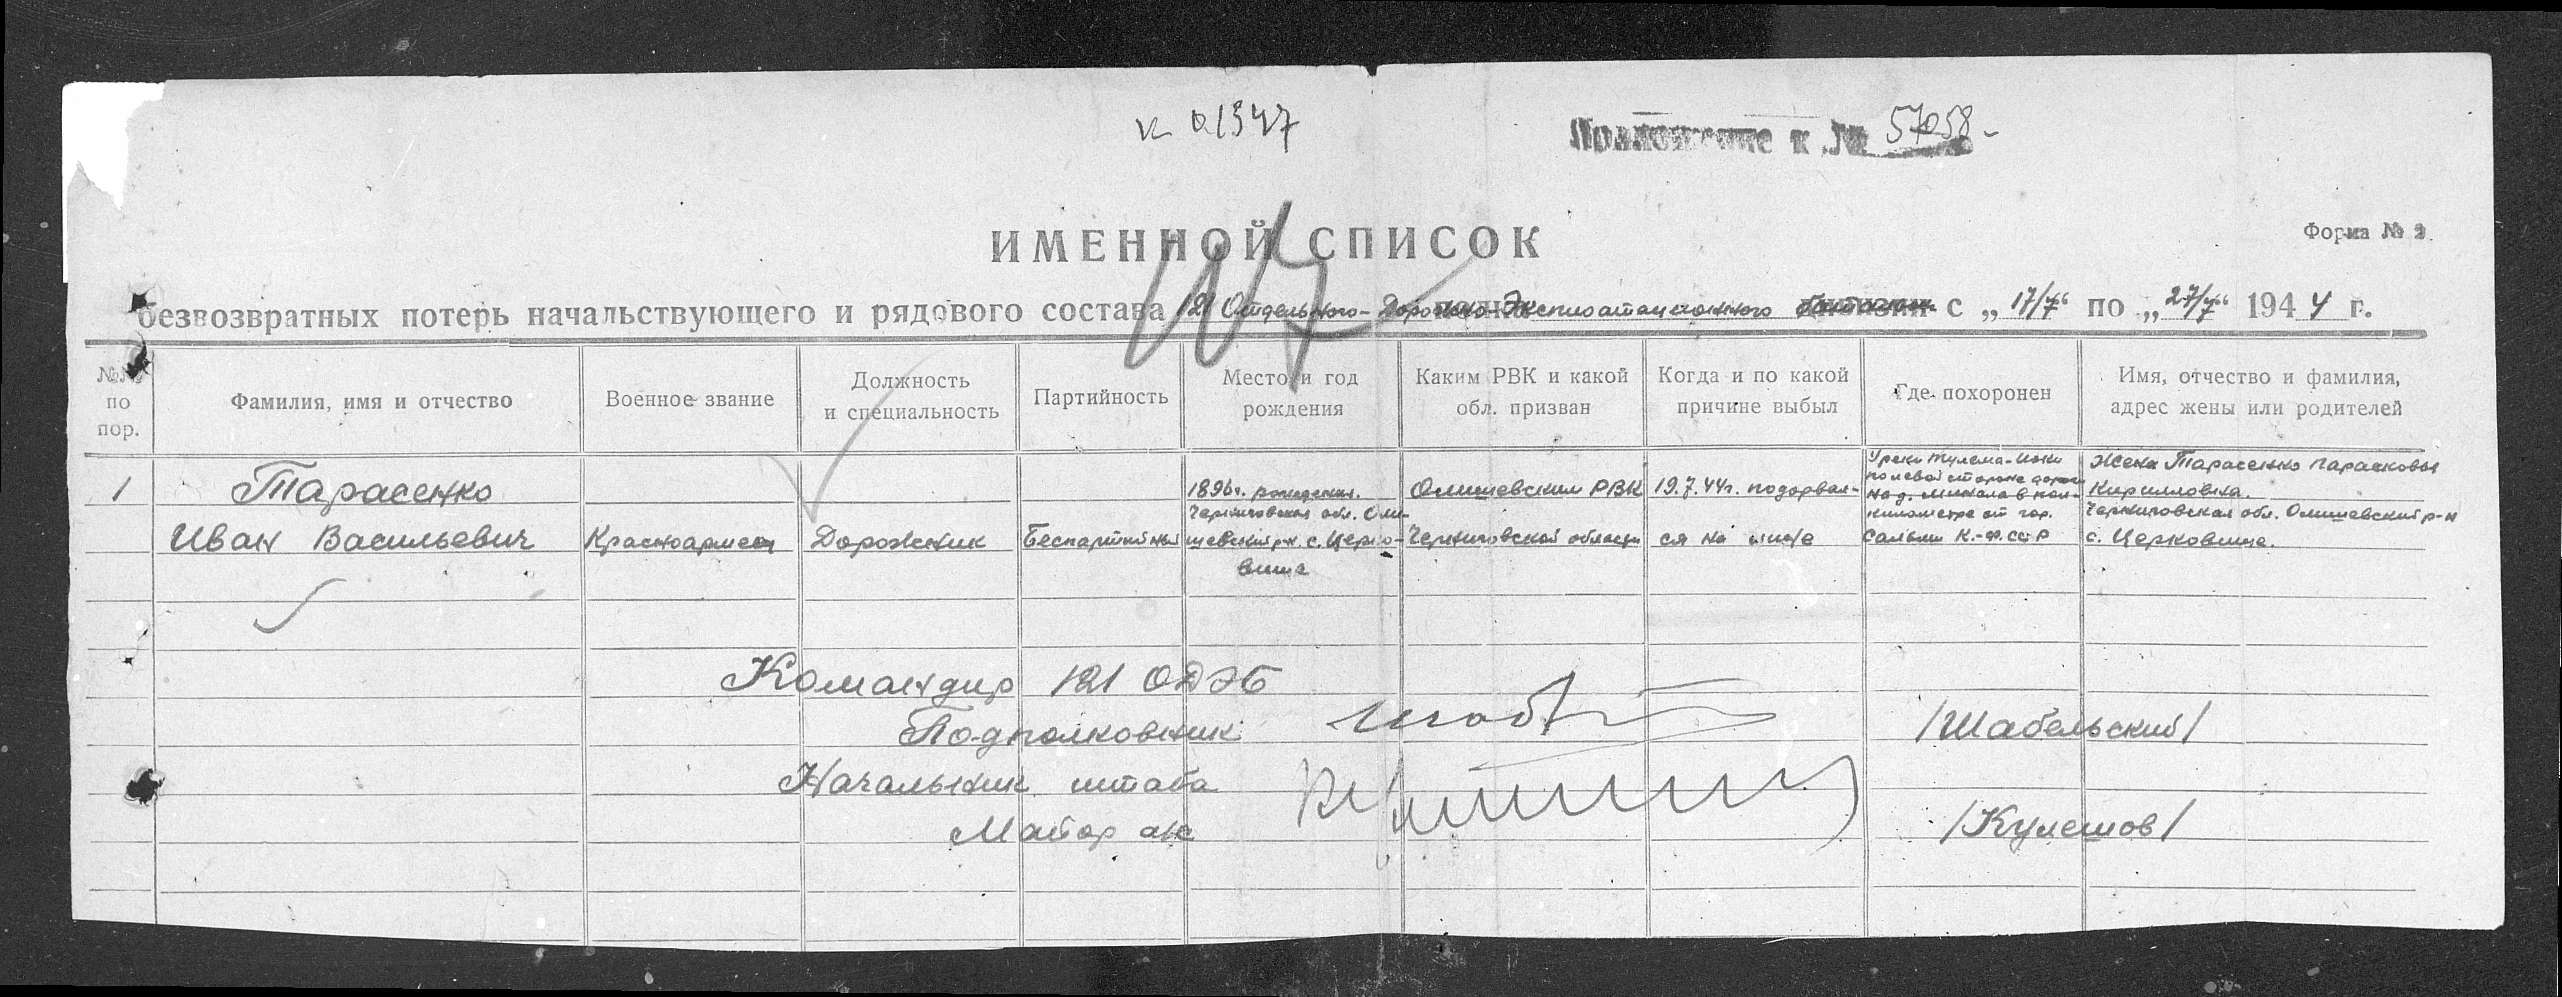 к 01347
Приложение к № 57058
ИМЕННОЙ СПИСОК
Форма № 2.
безвозвратных потерь начальствующего и рядового состава 121 Отдельного-Дорожно-Эксплоатационного батальон с „ 17/7" по „ 27/7" 1944 г.
№№ по пор.
Фамилия, имя и отчество
Военное звание
Должность и специальность
Партийность
Место и год рождения
Каким РВК и какой обл. призван
Когда и по какой причине выбыл
Где похоронен
Имя, отчество и фамилия, адрес жены или родителей
1
Тарасенко
Иван Васильевич
Красноармеец
Дорожник
Беспартийный
189 г. рождения.
Черниговская обл. Оли-
шевский р-н. с. Церко-
вище
Олишевским РВК
Черниговской области
19.7.44г. подорвал-
ся на мине
У реки Тулема-Иоки
по левой стороне дороги
на д. в
километре от гор.
Сальми К.-Ф.ССР
Жена Тарасенко Парасковья
Кирилловна.
Черниговская обл. Олишевский р-н
с. Церковище.
Командир 121 ОДЭБ
Подполковник
/Шабельский/
Начальник штаба
Майор а/с
/Кулешов/